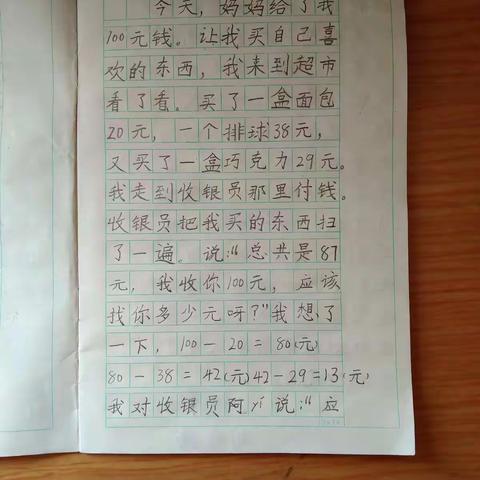 今天，妈妈给了我
100元钱。让我买自己喜
欢的东西，我来到超市
看了看。买了一盒面包
20元，一个排球38元，
又买了一盒巧克力29元。
我走到收银员那里付钱。
收银员把我买的东西扫
了一遍。说：“总共是87
元，我收你100元，应该
找你多少元呀？”我想了
一下，100－20＝80(元)
80－38＝42(元)42－29＝13(元)
我对收银员阿yí说：“应